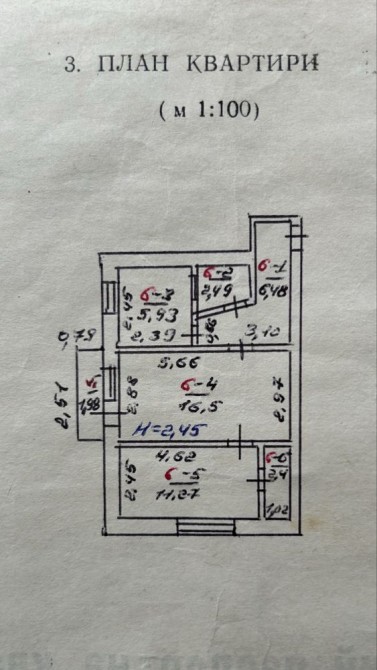 3. ПЛАН КВАРТИРИ
( м 1:100)
6-1
6,48
3,10
6-2
2,49
6-3
5,93
2,45
2,39
0,79
5,66
6-4
16,5
2,88
2,97
2,51
1,98
H=2,45
4,62
6-5
11,27
2,45
6-6
2,4
1,02